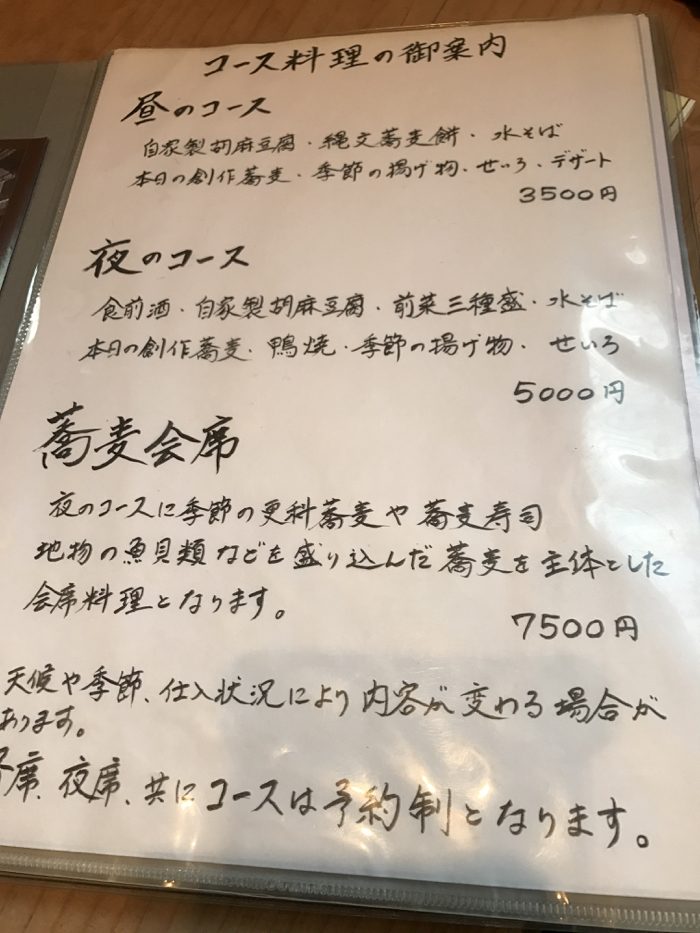 コース料理の御案内
昼のコース
自家製胡麻豆腐・縄文蕎麦餅・水そば
本日の創作蕎麦・季節の揚げ物・せいろ・デザート
3500円
夜のコース
食前酒・自家製胡麻豆腐・前菜三種盛・水そば
本日の創作蕎麦・鴨焼・季節の揚げ物・せいろ
5000円
蕎麦会席
夜のコースに季節の更科蕎麦や蕎麦寿司
地物の魚貝類などを盛り込んだ蕎麦を主体とした
会席料理となります。
7500円
天候や季節、仕入状況により内容が変わる場合が
あります。
席、夜席、共にコースは予約制となります。